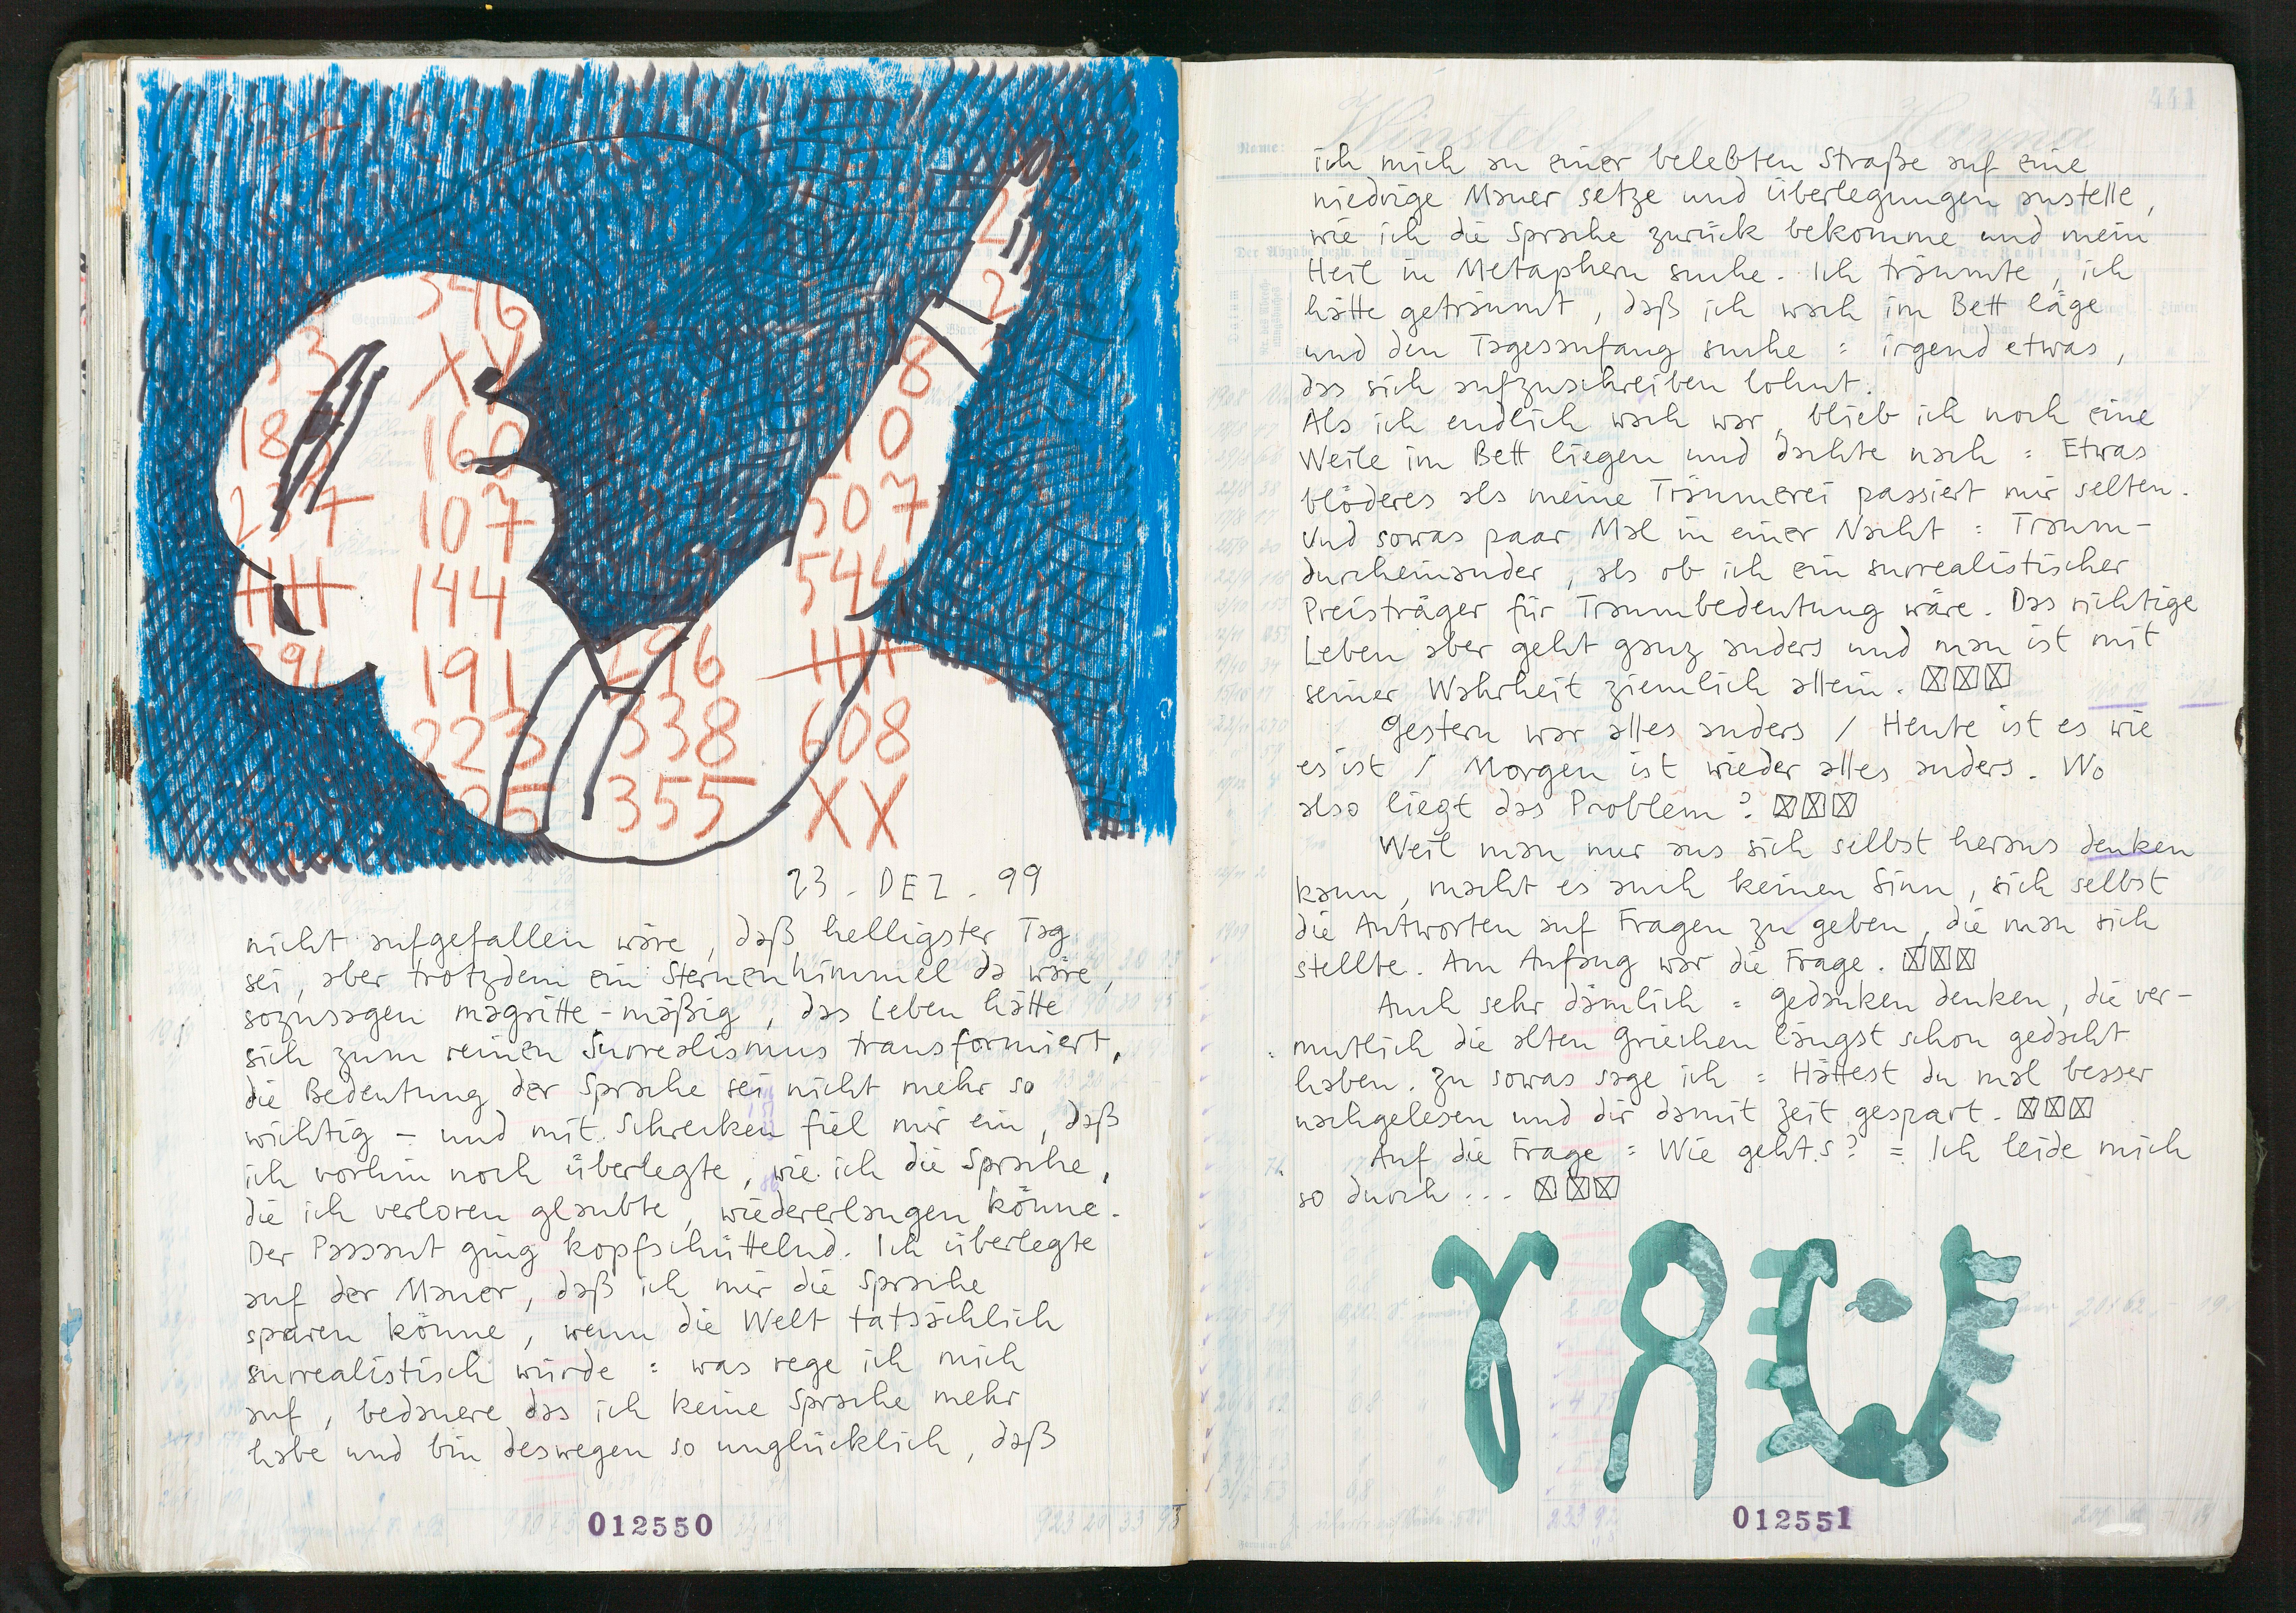 346
33
XV
18
160
237
107
144
191
296
223
338
25
355
8
10
507
544
608
XX
23. DEZ. 99
nicht aufgefallen wäre, daß helligster Tag
sei, aber trotzdem ein Sternenhimmel da wäre,
sozusagen magritte-mäßig, das Leben hätte
sich zum reinen Surrealismus transformiert,
die Bedeutung der Sprache sei nicht mehr so
wichtig – und mit Schrecken fiel mir ein, daß
ich vorhin noch überlegte, wie ich die Sprache,
die ich verloren glaubte, wiedererlangen könne.
Der Passant ging kopfschüttelnd. Ich überlegte
auf der Mauer, daß ich mir die Sprache
sparen könne, wenn die Welt tatsächlich
surrealistisch würde : was rege ich mich
auf, bedauere das ich keine Sprache mehr
habe und bin deswegen so unglücklich, daß
012550
441
Winstel Hanna
Name:
ich mich an einer belebten Straße auf eine
niedrige Mauer setze und überlegungen anstelle,
wie ich die Sprache zurück bekomme und mein
Heil in Metaphern suche. Ich träumte, ich
hätte geträumt, daß ich wach im Bett läge
und den Tagesanfang suche : irgend etwas,
das sich aufzuschreiben lohnt.
Als ich endlich wach war, blieb ich noch eine
Weile im Bett liegen und dachte nach : Etwas
blöderes als meine Träumerei passiert mir selten.
Und sowas paar Mal in einer Nacht : Traum-
durcheinander, als ob ich ein surrealistischer
Preisträger für Traumbedeutung wäre. Das richtige
Leben aber geht ganz anders und man ist mit
seiner Wahrheit ziemlich allein. ☒☒☒
Gestern war alles anders / Heute ist es wie
es ist / Morgen ist wieder alles anders. Wo
also liegt das Problem? ☒☒☒
Weil man nur aus sich selbst heraus denken
kann, macht es auch keinen Sinn, sich selbst
die Antworten auf Fragen zu geben, die man sich
stellte. Am Anfang war die Frage. ☒☒☒
Auch sehr dämlich : Gedanken denken, die ver-
mutlich die alten Griechen längst schon gedacht
haben. Zu sowas sage ich : Hättest du mal besser
nachgelesen und dir damit Zeit gespart. ☒☒☒
Auf die Frage : Wie geht.s? = Ich leide mich
so durch... ☒☒☒
012551